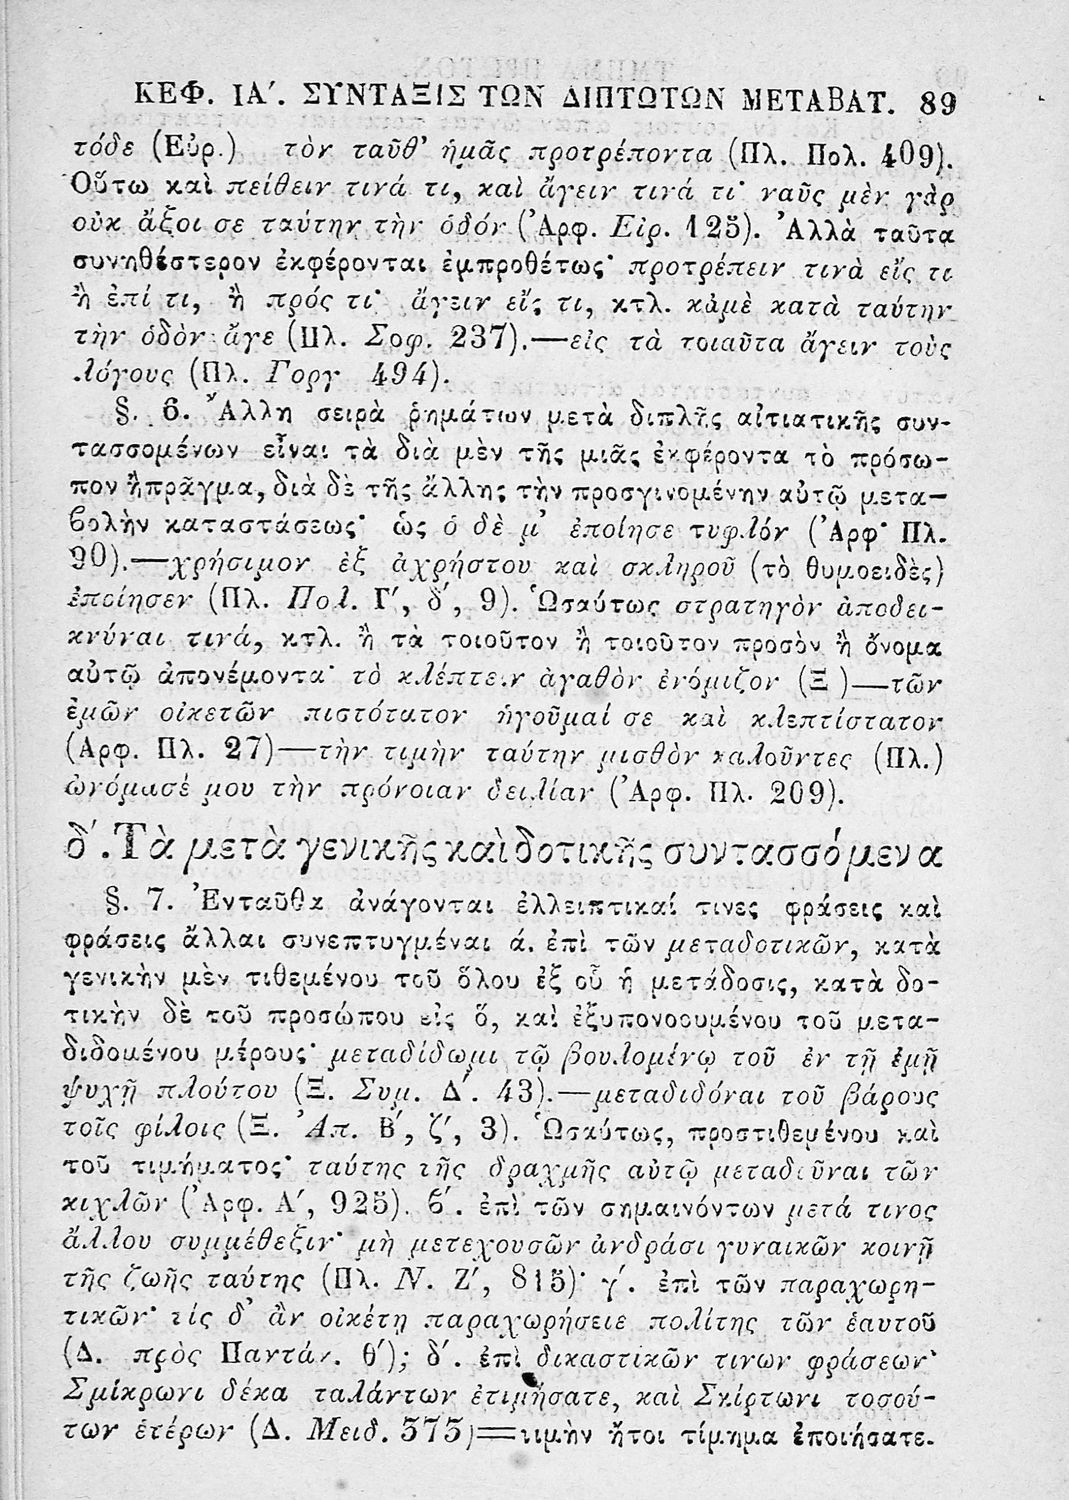 ΚΕΦ. ΙΑ′. ΣΥΝΤΑΞΙΣ ΤΩΝ ΔΙΠΤΩΤΩΝ ΜΕΤΑΒΑΤ. 89
τόδε (Εὐρ.) τὸν ταῦθ’ ἡμᾶς προτρέποντα (Πλ. Πολ. 409).
Οὕτω καὶ πείθειν τινά τι, καὶ ἄγειν τινά τι· ναῦς μὲν γὰρ
οὐκ ἄξοι σε ταύτην τὴν ὁδόν (Ἀρφ. Εἰρ. 125). Ἀλλὰ ταῦτα
συνηθέστερον ἐκφέρονται ἐμπροθέτως· προτρέπειν τινὰ εἴς τι
ἢ ἐπί τι, ἢ πρός τι· ἄγειν εἴς τι, κτλ. κἀμὲ κατὰ ταύτην
τὴν ὁδὸν ἄγε (Πλ. Σοφ. 237).—εἰς τὰ τοιαῦτα ἄγειν τοὺς
λόγους (Πλ. Γοργ 494).
§. 6. Ἄλλη σειρὰ ῥημάτων μετὰ διπλῆς αἰτιατικῆς συν-
τασσομένων εἶναι τὰ διὰ μὲν τῆς μιᾶς ἐκφέροντα τὸ πρόσω-
πον ἢ πρᾶγμα, διὰ δὲ τῆς ἄλλης τὴν προσγινομένην αὐτῷ μετα-
βολὴν καταστάσεως· ὡς ὁ δὲ μ’ ἐποίησε τυφλόν (Ἀρφ· Πλ.
90).—χρήσιμον ἐξ ἀχρήστου καὶ σκληροῦ (τὸ θυμοειδὲς)
ἐποίησεν (Πλ. Πολ. Γ′, δ′, 9). Ὡσαύτως στρατηγὸν ἀποδει-
κνύναι τινά, κτλ. ἢ τὰ τοιοῦτον ἢ τοιοῦτον προσὸν ἢ ὄνομα
αὐτῷ ἀπονέμοντα· τὸ κλέπτειν ἀγαθὸν ἐνόμιζον (Ξ )—τῶν
ἐμῶν οἰκετῶν πιστότατον ἡγοῦμαί σε καὶ κλεπτίστατον
(Αρφ. Πλ. 27)—τὴν τιμὴν ταύτην μισθὸν καλοῦντες (Πλ.)
ὠνόμασέ μου τὴν πρόνοιαν δειλίαν (Ἀρφ. Πλ. 209).
δ′. Τὰ μετὰ γενικῆς καὶ δοτικῆς συντασσόμενα
§. 7. Ἐνταῦθα ἀνάγονται ἐλλειπτικαί τινες φράσεις καὶ
φράσεις ἄλλαι συνεπτυγμέναι ά. ἐπὶ τῶν μεταδοτικῶν, κατὰ
γενικὴν μὲν τιθεμένου τοῦ ὅλου ἐξ οὗ ἡ μετάδοσις, κατὰ δο-
τικὴν δὲ τοῦ προσώπου εἰς ὅ, καὶ ἐξυπονοουμένου τοῦ μετα-
διδομένου μέρους· μεταδίδωμι τῷ βουλομένῳ τοῦ ἐν τῇ ἐμῇ
ψυχῇ πλούτου (Ξ. Συμ. Δ′. 43).—μεταδιδόναι τοῦ βάρους
τοῖς φίλοις (Ξ. Ἀπ. Β′, ζ′, 3). Ὡσαύτως, προστιθεμένου καὶ
τοῦ τιμήματος· ταύτης τῆς δραχμῆς αὐτῷ μεταδοῦναι τῶν
κιχλῶν (Ἀρφ. Α′, 925). β′. ἐπὶ τῶν σημαινόντων μετά τινος
ἄλλου συμμέθεξιν· μὴ μετεχουσῶν ἀνδράσι γυναικῶν κοινῇ
τῆς ζωῆς ταύτης (Πλ. Ν. Ζ′, 815)· γ′. ἐπὶ τῶν παραχωρη-
τικῶν· τίς δ’ ἂν οἰκέτῃ παραχωρήσειε πολίτης τῶν ἑαυτοῦ
(Δ. πρὸς Πανταίν. θ′); δ′. ἐπὶ δικαστικῶν τινων φράσεων·
Σμίκρωνι δέκα ταλάντων ἐτιμήσατε, καὶ Σκίρτωνι τοσού-
των ἑτέρων (Δ. Μειδ. 575)=τιμὴν ἤτοι τίμημα ἐποιήσατε.